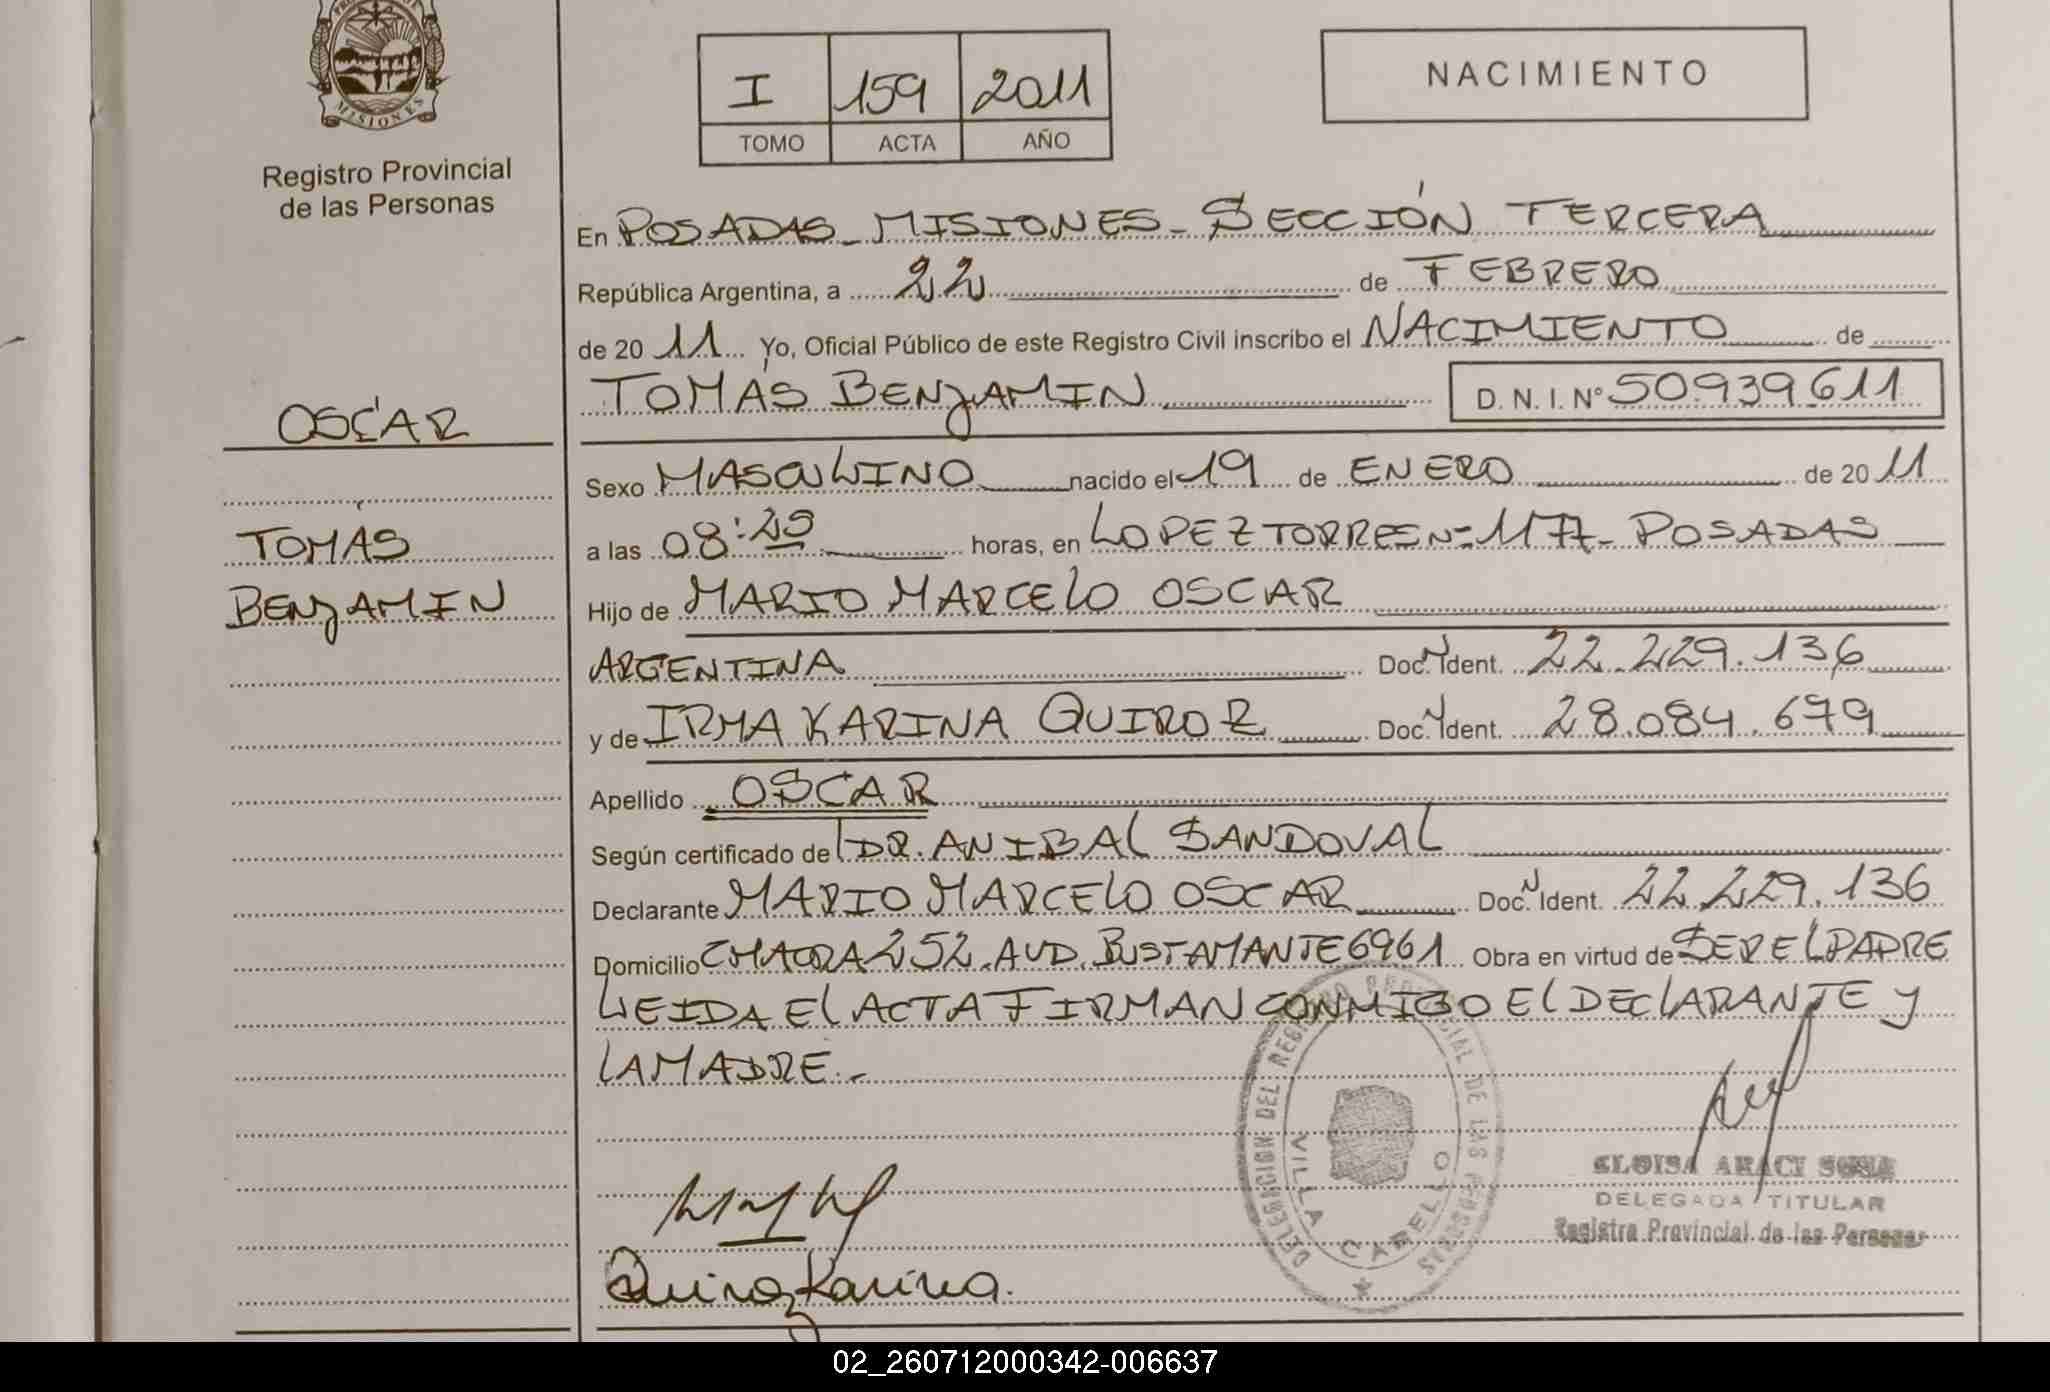 MISIONES
Registro Provincial
de las Personas
I 159 2011
TOMO ACTA AÑO
NACIMIENTO
OSCAR
TOMÁS
BENJAMIN
En POSADAS - MISIONES - SECCIÓN TERCERA
República Argentina, a 22 de FEBRERO
de 2011 Yo, Oficial Público de este Registro Civil inscribo el NACIMIENTO de
TOMÁS BENJAMIN D.N.I. Nº 50.939.611
Sexo MASCULINO nacido el 19 de ENERO de 2011
a las 08:25 horas, en LOPEZ TORRES Nº 1177 - POSADAS
Hijo de MARIO MARCELO OSCAR
ARGENTINA Doc. Ident. 22.229.136
y de IRMA KARINA QUIROZ Doc. Ident. 28.084.679
Apellido OSCAR
Según certificado de DR. ANIBAL SANDOVAL
Declarante MARIO MARCELO OSCAR Doc. Ident. 22.229.136
Domicilio CHACRA 252. AVD. BUSTAMANTE 6961 Obra en virtud de SER EL PADRE
LEIDA EL ACTA FIRMAN CONMIGO EL DECLARANTE Y
LA MADRE.-
DELEGACION DEL REGISTRO PROVINCIAL DE LAS PERSONAS
VILLA CABELLO
ELOISA ARACI SOSA
DELEGADA TITULAR
Registro Provincial de las Personas
Quiroz Karina.
02_260712000342-006637